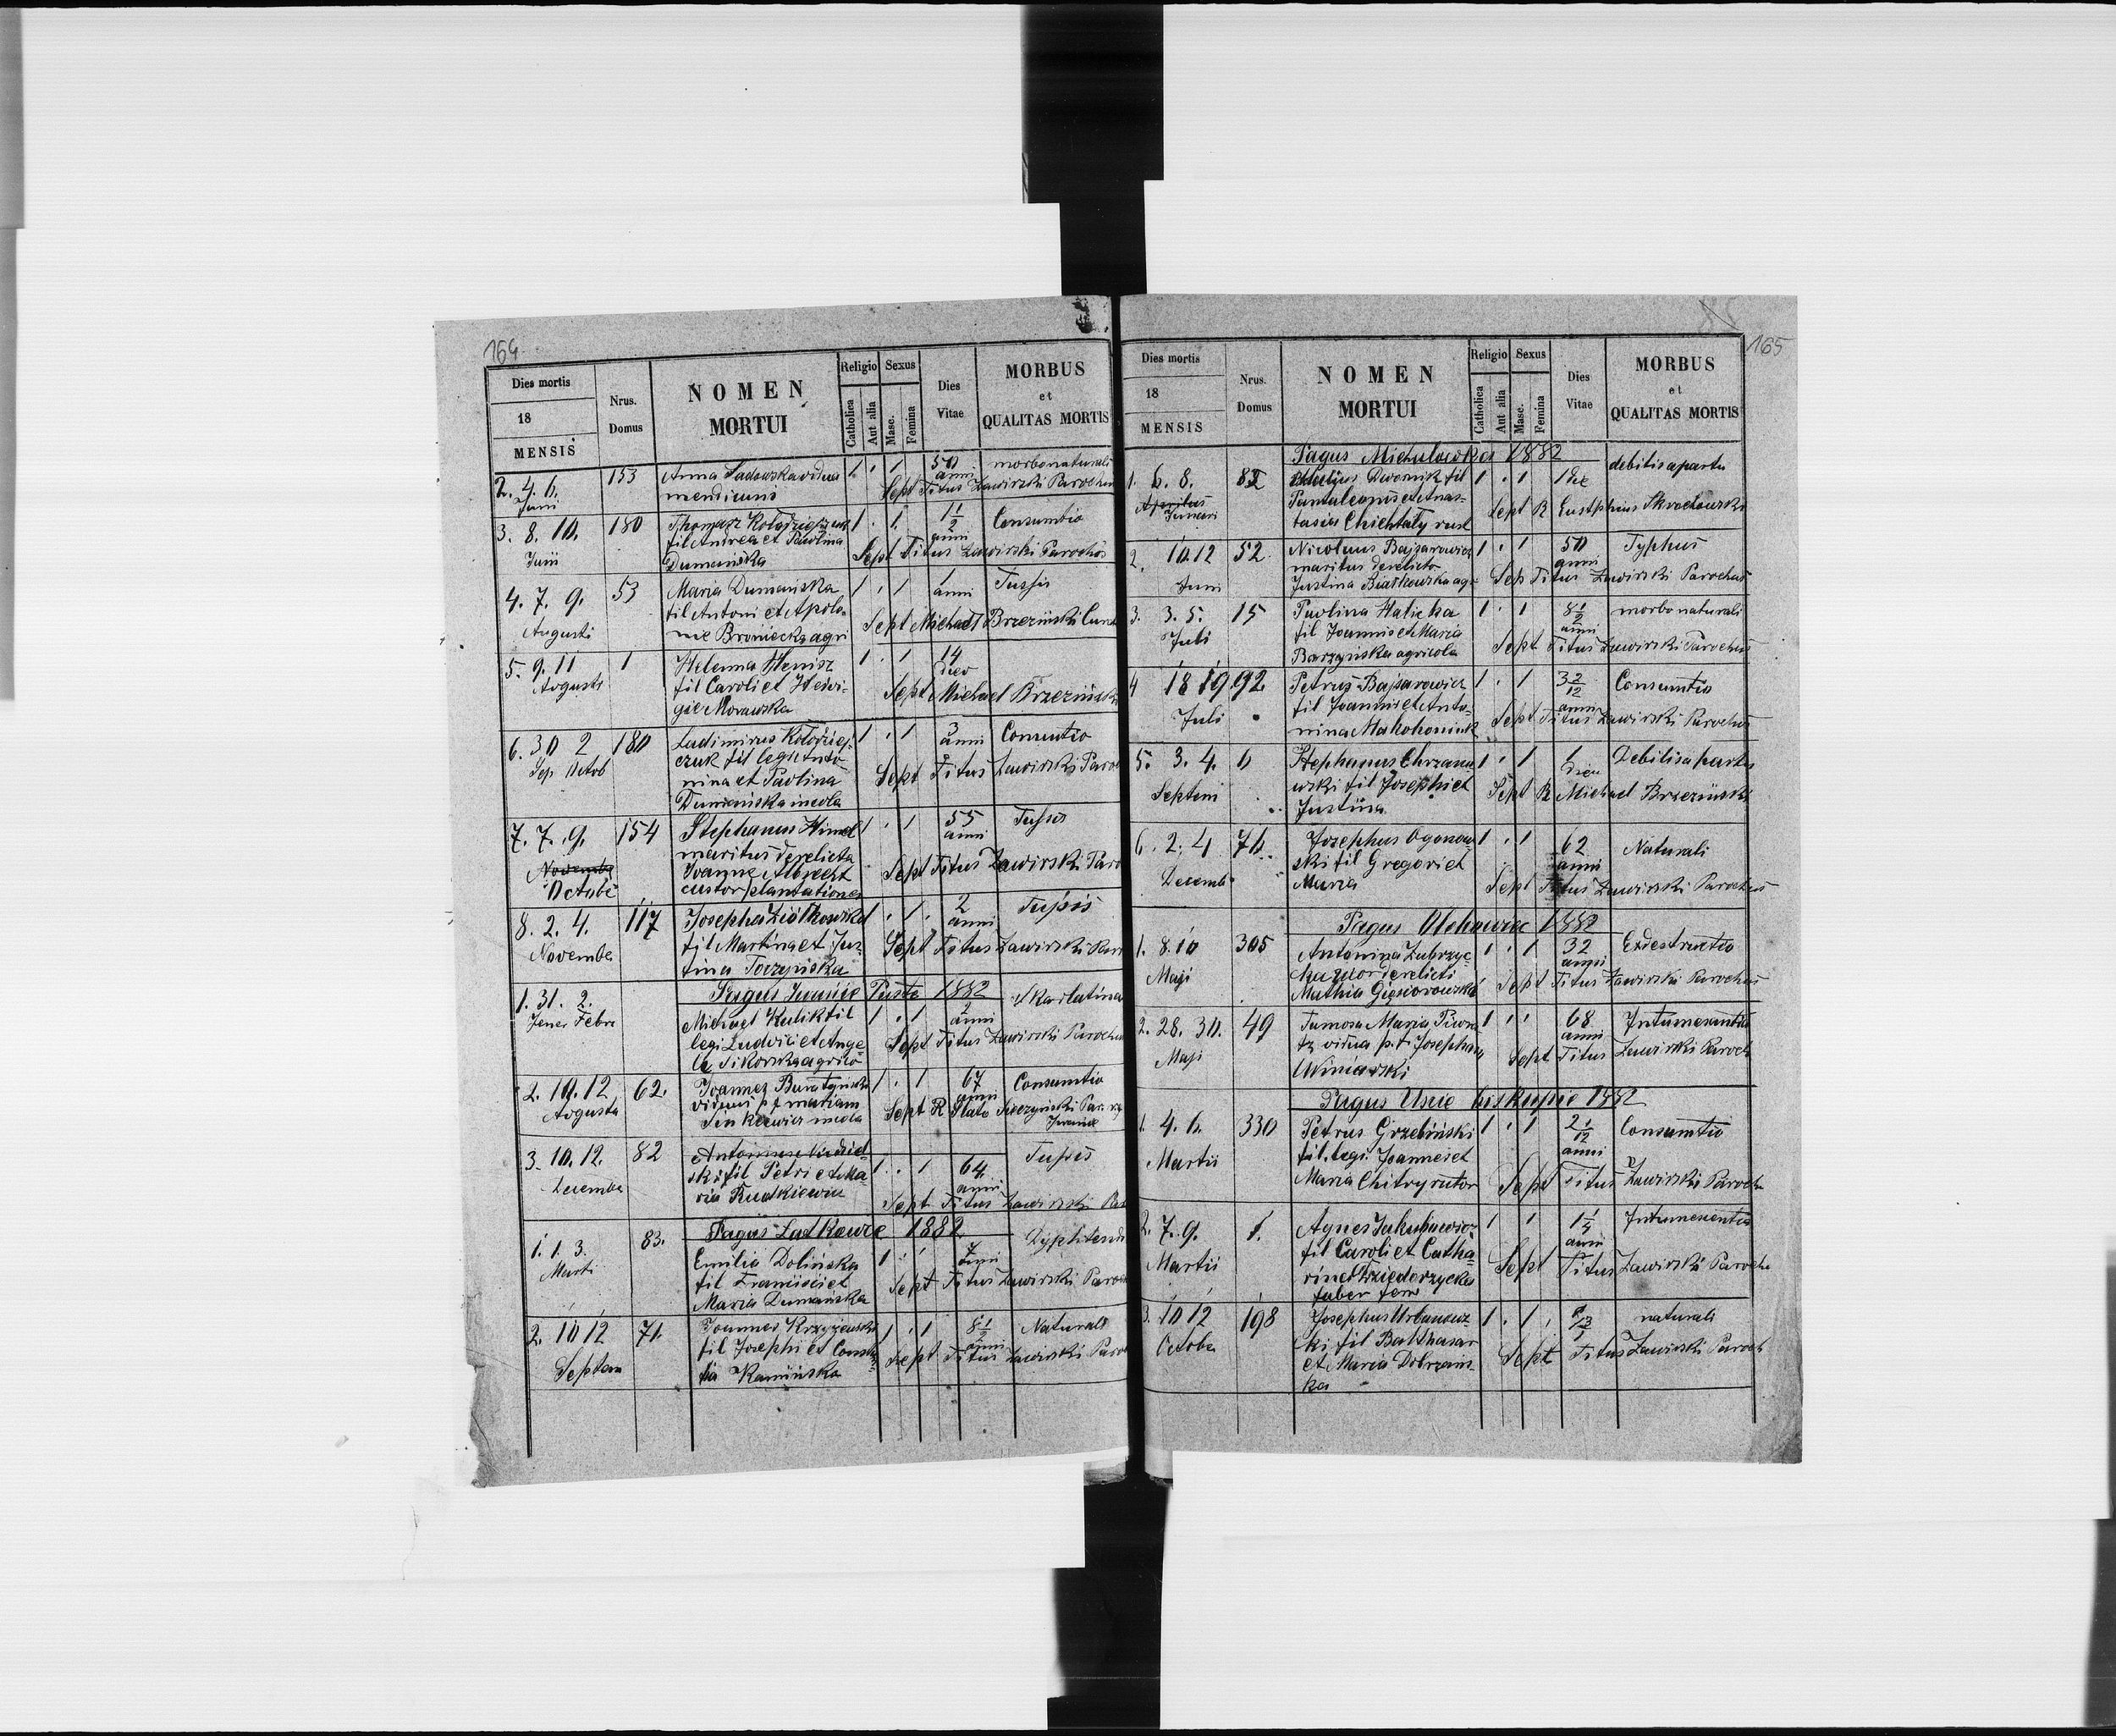 164
Dies mortis
18
MENSIS
Nrus.
Domus
NOMEN
MORTUI
Religio
Catholica
Aut alia
Sexus
Masc.
Femina
Dies
Vitae
MORBUS
et
QUALITAS MORTIS
2. 4. 6. 153 Anna Sadowska vidua 1 1 50 anni morbo naturali
Juni mendicans Sept Titus Zawirski Parochus
3. 8. 10. 180 Thomasz 1 1 1 1/2 anni Consumtio
Junii fil Andrea et Paulina Sept Titus Zawirski Parochus
Dumańska
4. 7. 9. 53 Maria Dumańska 1 1 1 anni Tussis
Augusti fil Antoni et Apolo- Sept Michael Brzeziński
nie Broniecka agri
5. 9. 11 1 Helenna Henisz 1 1 14 dies
Avgusti fil Caroli et Hedvi- Sept Michael Brzeziński
gie Morawska
6. 30 2 180 Ladimirus Kołodziej- 1 1 3 anni Consumtio
Sep Octob czuk fil legi Anto- Sept Titus Zawirski Paro
nina et Paulina
Dumańska incola
7. 7. 9. 154 Stephanus Himel 1 1 55 anni Tussis
Novembe maritus derelicta Sept Titus Zawirski Paro
Octobe Joanne Albrecht
custor plantationes
8. 2. 4. 117 Josepha Ziółkowska 1 1 2 anni Tussis
Novembe fil Martina et Jus- Sept Titus Zawirski Par
tina Toczyńska
Pagus Iwanie Puste 1882
1. 31. 2. Michael Kulik fil 1 1 2 anni Skarlatina
Janer Febr legi Ludovici et Ange Sept Titus Zawirski Parochus
la Sikorska agrico
2. 10. 12 62. Joannes 1 1 67 anni Consumtio
Avgusta viduus p f mariam Sept R
3. 10. 12. 82 Antonius 1 1 64 anni Tussis
Decembe ski fil Petri et Ma- Sept Titus Zawirski Par
ria Rudkiewicz
Pagus Latkowce 1882
1. 1. 3. 83. Emilia Dolińska 1 1 7 anni
Marti fil Francisci et Sept Titus Zawirski Paroch
Maria Dumańska
2. 10 12 71. Joannes Krzyżewski 1 1 8 1/2 anni Naturali
Septem fil Josephi et Sept Titus Zawirski Paro
Kamińska
165
Dies mortis
18
MENSIS
Nrus.
Domus
NOMEN
MORTUI
Religio
Catholica
Aut alia
Sexus
Masc.
Femina
Dies
Vitae
MORBUS
et
QUALITAS MORTIS
Pagus Michałowka 1882
1. 6. 8. 82 Dwornik fil 1 1 debilis a partu
Aprilus Pantaleonis et Anas- Sept R
Januari tasia rust
2. 10 12 52 Nicolaus Bajzarowicz 1 1 50 anni Typhus
Juni maritus derelicto Sep Titus Zawirski Parochus
Justina Białkowska ag
3. 3. 5. 15 Paulina Halicka 1 1 8 1/2 anni morbo naturali
Juli fil Joannis et Maria Sept Titus Zawirski Parochus
Barzyńska agricola
4 18 19 92. Petrus Bajzarowicz 1 1 3 2/12 anni Consumtio
Juli fil Joannis et Anto- Sept Titus Zawirski Parochus
nina Mahohoniuk
5. 3. 4. 6 Stephanus Chrzano- 1 1 1 dieu Debilis a partu
Septem wski fil Josephi et Sept R Michael Brzeziński
Justina
6. 2. 4 Josephus Ogonow- 1 1 62 anni Naturali
Decemb ski fil Gregori et Sept Titus Zawirski Parochus
Maria
Pagus Olchowiec 1882
1. 8. 10 305 Antonina Zubrzyc- 1 1 32 anni Exdestructio
Maji ka uxor derelicti Sept Titus Zawirski Parochus
Mathia Gięsiorowski
2. 28. 30. 49 Famosa Maria 1 68 anni Intumescentia
Maji vidua p. f. Josephum Sept Titus Zawirski Paroch
Winiarski
Pagus Uście biskupie 1882
1. 4. 6. 330 Petrus Grzebiński 1 1 2 1/12 anni Consumtio
Martii fil. legi. Joannes et Sept Titus Zawirski Paroch
Maria Chitry sutor
2. 7. 9. 1. Agnes Jakubowicz 1 1 1 1/4 anni Intumescentia
Martii fil Caroli et Catha- Sept Titus Zawirski Paroch
rine
faber ferr
3. 10 12 198 Josephus Urbanows- 1 1 naturali
Octobe ki fil Balthasar Sept Titus Zawirski Paroch
et Maria Dobrzańs-
ka